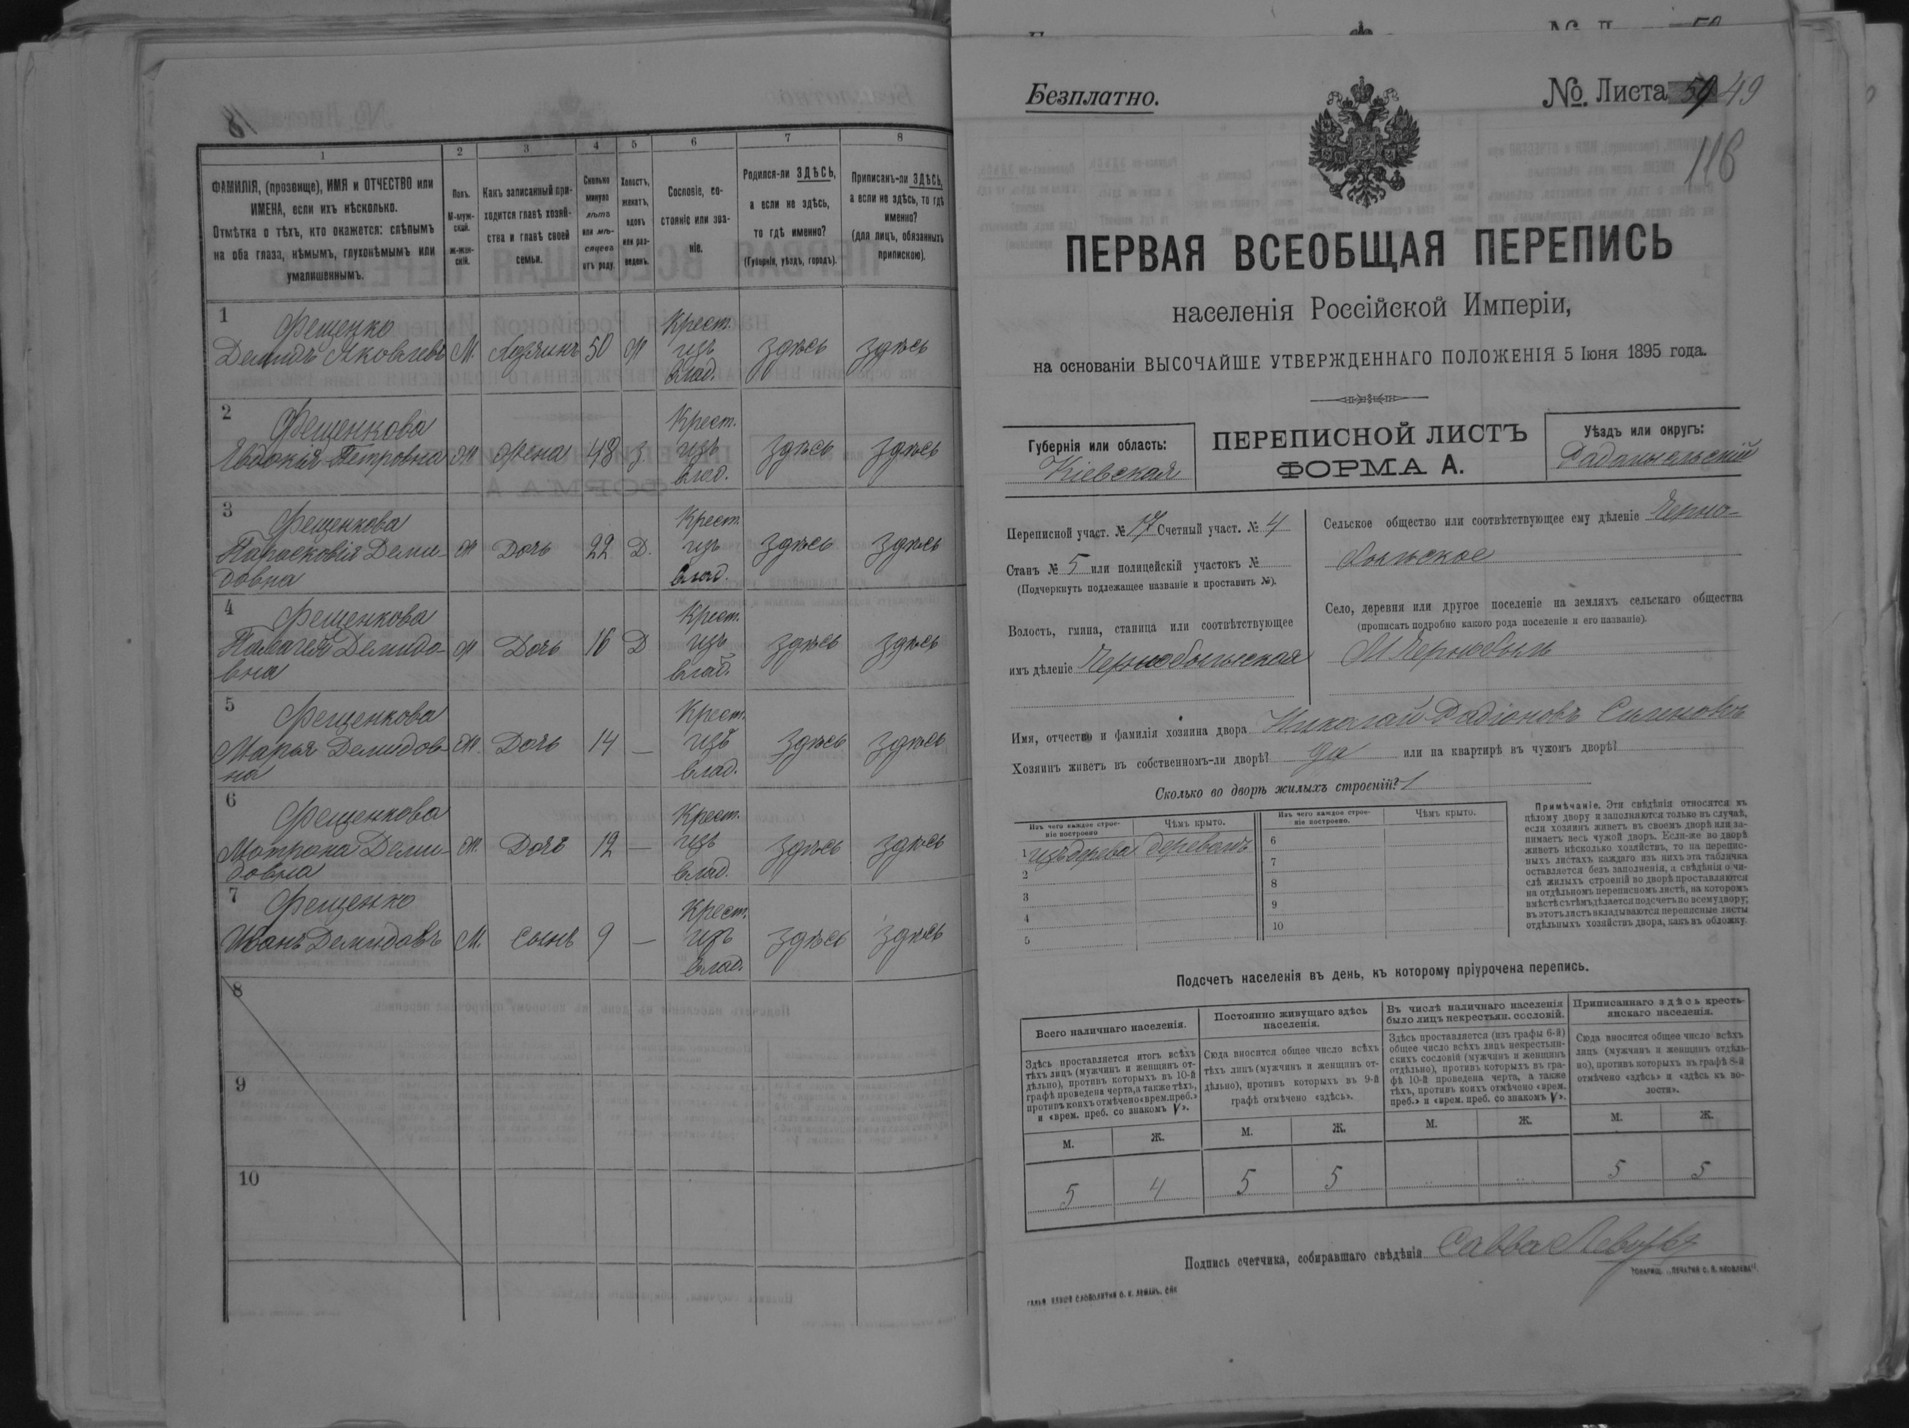 1 2 3 4 5 6 7 8
ФАМИЛІЯ, (прозвище), ИМЯ и ОТЧЕСТВО или
ИМЕНА, если ихъ нѣсколько.
Отмѣтка о тѣхъ, кто окажется: слѣпымъ
на оба глаза, нѣмымъ, глухонѣмымъ или
умалишеннымъ.
Полъ.
М-муж-
ской.
Ж-жен-
скій.
Какъ записанный при-
ходится главѣ хозяй-
ства и главѣ своей
семьи.
Сколько
минуло
лѣтъ
или мѣ-
сяцевъ
отъ роду.
Холостъ,
женатъ,
вдовъ
или раз-
веденъ.
Сословіе, со-
стояніе или зва-
ніе.
Родился-ли ЗДѢСЬ,
а если не здѣсь,
то гдѣ именно?
(Губернія, уѣздъ, городъ).
Приписанъ-ли ЗДѢСЬ,
а если не здѣсь, то гдѣ
именно?
(для лицъ, обязанныхъ
припискою).
1 Фещенко Крест.
Демидъ Яковлевъ М. Хозяинъ 50 Ж изъ здѣсь здѣсь
влад.
2 Фещенкова Крест.
Евдокія Петровна Ж Жена 48 З изъ здѣсь здѣсь
влад.
3 Фещенкова Крест.
Парасковія Деми- Ж Дочь 22 Д. изъ здѣсь здѣсь
довна влад.
4 Фещенкова Крест.
Пелагея Демидо- Ж Дочь 16 Д изъ здѣсь здѣсь
вна влад.
5 Фещенкова Крест.
Марья Демидов- Ж. Дочь 14 — изъ здѣсь здѣсь
на влад.
6 Фещенкова Крест.
Мотрона Деми- Ж. Дочь 12 — изъ здѣсь здѣсь
довна влад.
7 Фещенко Крест.
Иванъ Демидовъ М. Сынъ 9 — изъ здѣсь здѣсь
влад.
8
9
10
Безплатно.
№ Листа 49
118
ПЕРВАЯ ВСЕОБЩАЯ ПЕРЕПИСЬ
населенія Россійской Имперіи,
на основаніи ВЫСОЧАЙШЕ УТВЕРЖДЕННАГО ПОЛОЖЕНІЯ 5 Іюня 1895 года.
Губернія или область:
Кіевская
ПЕРЕПИСНОЙ ЛИСТЪ
ФОРМА А.
Уѣздъ или округъ:
Радомысльскій
Переписной участ. № 17 Счетный участ. № 4
Станъ № 5 или полицейскій участокъ №
(Подчеркнуть подлежащее названіе и проставить №).
Волость, гмина, станица или соотвѣтствующее
имъ дѣленіе Чернобыльская
Сельское общество или соотвѣтствующее ему дѣленіе Черно-
быльское
Село, деревня или другое поселеніе на земляхъ сельскаго общества
(прописать подробно какого рода поселеніе и его названіе).
М Чернобыль
Имя, отчество и фамилія хозяина двора Николай Радіоновъ
Хозяинъ живетъ въ собственномъ-ли дворѣ? да или на квартирѣ въ чужомъ дворѣ?
Сколько во дворѣ жилыхъ строеній? 1
Изъ чего каждое строе-
ніе построено
Чѣмъ крыто.
Изъ чего каждое строе-
ніе построено.
Чѣмъ крыто.
1 изъ дерева деревомъ 6
2 7
3 8
4 9
5 10
Примѣчаніе. Эти свѣдѣнія относятся къ
цѣлому двору и заполняются только въ случаѣ,
если хозяинъ живетъ въ своемъ дворѣ или за-
нимаетъ весь чужой дворъ. Если-же во дворѣ
живетъ нѣсколько хозяйствъ, то на перепис-
ныхъ листахъ каждаго изъ нихъ эта табличка
оставляется безъ заполненія, а свѣдѣнія о чи-
слѣ жилыхъ строеній во дворѣ проставляются
на отдѣльномъ переписномъ листѣ, на которомъ
вмѣстѣ съ тѣмъ дѣлается подсчетъ по всему двору;
въ этотъ листъ вкладываются переписные листы
отдѣльныхъ хозяйствъ двора, какъ въ обложку.
Подсчетъ населенія въ день, къ которому пріурочена перепись.
Всего наличнаго населенія.
Здѣсь проставляется итогъ всѣхъ
тѣхъ лицъ (мужчинъ и женщинъ от-
дѣльно), противъ которыхъ въ 10-й
графѣ проведена черта, а также тѣхъ,
противъ коихъ отмѣчено «врем. преб.»
и «врем. преб. со знакомъ V».
Постоянно живущаго здѣсь
населенія.
Сюда вносится общее число всѣхъ
тѣхъ лицъ (мужчинъ и женщинъ от-
дѣльно), противъ которыхъ въ 9-й
графѣ отмѣчено «здѣсь».
Въ числѣ наличнаго населенія
было лицъ некрестьян. сословій.
Здѣсь проставляется (изъ графы 6-й)
общее число всѣхъ лицъ некрестьян-
скихъ сословій (мужчинъ и женщинъ
отдѣльно), противъ которыхъ въ гра-
фѣ 10-й проведена черта, а также
тѣхъ, противъ коихъ отмѣчено «врем.
преб.» и «врем. преб. со знакомъ V».
Приписаннаго здѣсь кресть-
янскаго населенія.
Сюда вносится общее число всѣхъ
лицъ (мужчинъ и женщинъ отдѣль-
но), противъ которыхъ въ графѣ 8-й
отмѣчено «здѣсь» и «здѣсь въ во-
лости».
М. Ж. М. Ж. М. Ж. М. Ж.
5 4 5 5 5 5
Подпись счетчика, собиравшаго свѣдѣнія Савва